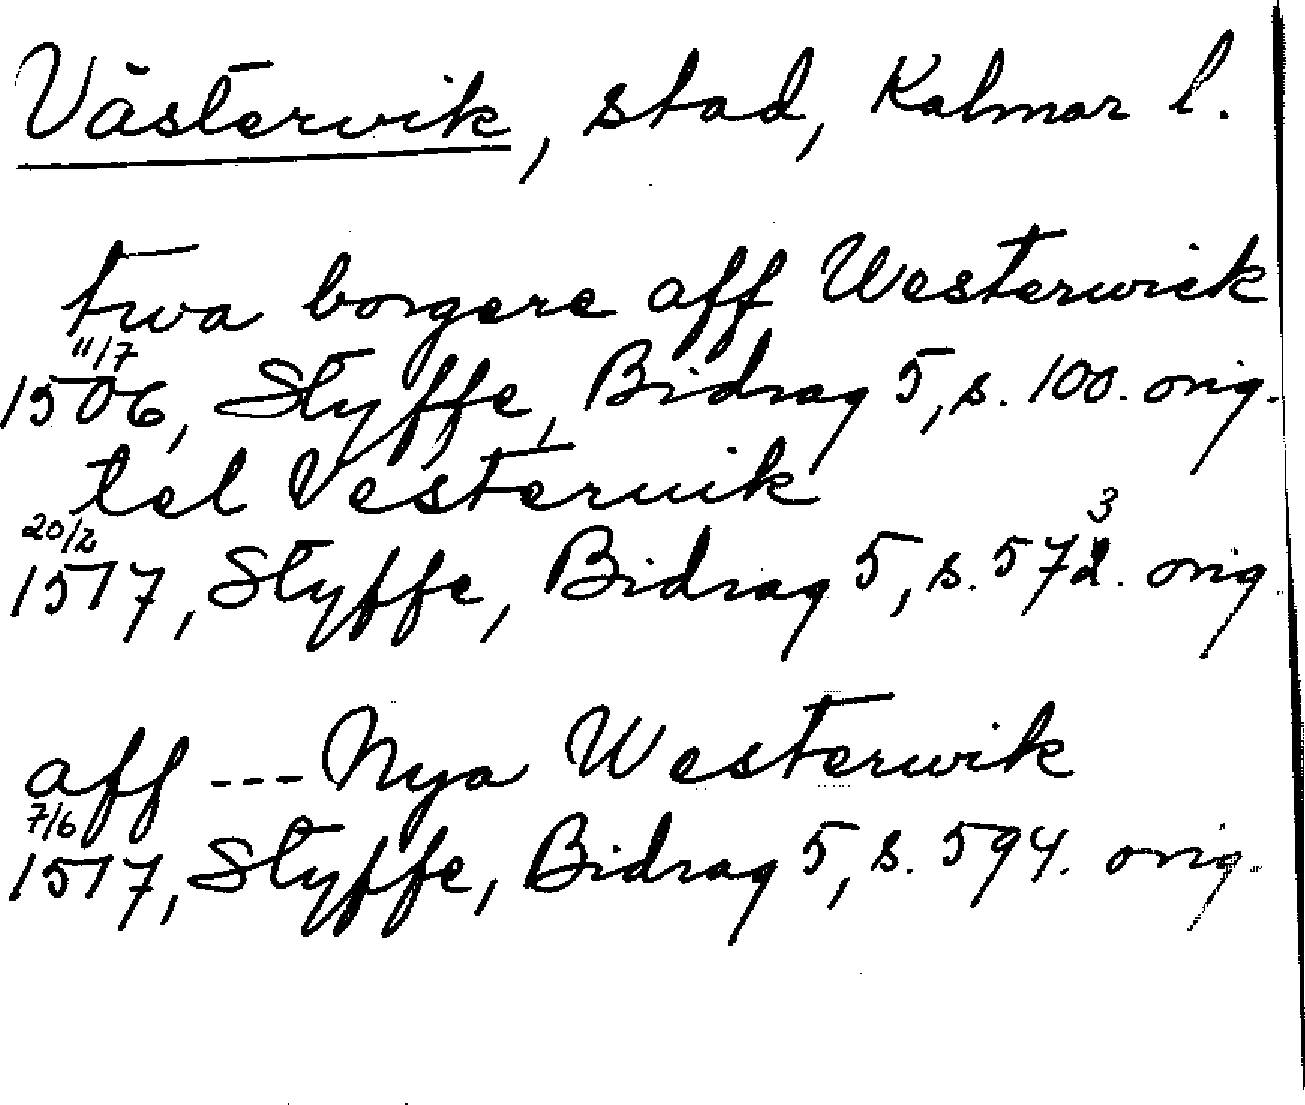 Västervik, stad, Kalmar l.
twa borgere aff Westerwick
11/7
1506, Styffe, Bidrag 5, s. 100. orig.
tel Vesteruik
20/2
3
1517, Styffe, Bidrag 5, s. 572. orig
aff --- Nya Westerwik
7/6
1517, Styffe, Bidrag 5, s. 594. orig.